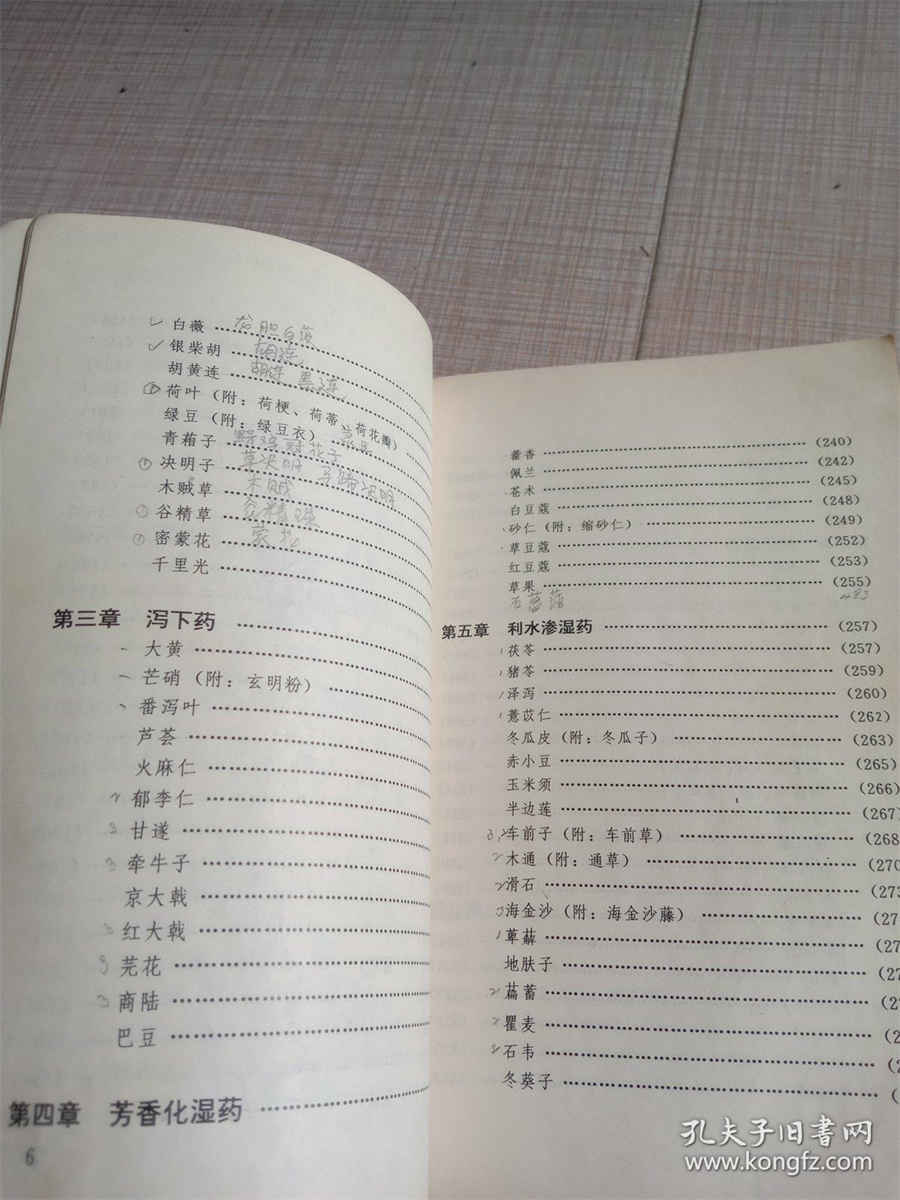 白薇 龙胆白薇
银柴胡
胡黄连 胡连 黑连
荷叶（附：荷梗、荷蒂、荷花瓣）
绿豆（附：绿豆衣）
青葙子
决明子 草决明 马蹄决明
木贼草 木贼
谷精草 谷精珠
密蒙花 蒙花
千里光
第三章 泻下药
大黄
芒硝（附：玄明粉）
番泻叶
芦荟
火麻仁
2 郁李仁
3 甘遂
3 牵牛子
京大戟
3 红大戟
3 芫花
3 商陆
巴豆
第四章 芳香化湿药
6
藿香 (240)
佩兰 (242)
苍术 (245)
白豆蔻 (248)
砂仁（附：缩砂仁） (249)
草豆蔻 (252)
红豆蔻 (253)
草果 (255)
石菖蒲 483
第五章 利水渗湿药 (257)
茯苓 (257)
猪苓 (259)
泽泻 (260)
薏苡仁 (262)
冬瓜皮（附：冬瓜子） (263)
赤小豆 (265)
玉米须 (266)
半边莲 (267)
车前子（附：车前草） (268
2 木通（附：通草） (270
2 滑石 (273
海金沙（附：海金沙藤） (27
1 萆薢 (27
地肤子 (27
2 萹蓄 (2
2 瞿麦 (2
2 石韦 (2
冬葵子 (
孔夫子旧书网
www.kongfz.com